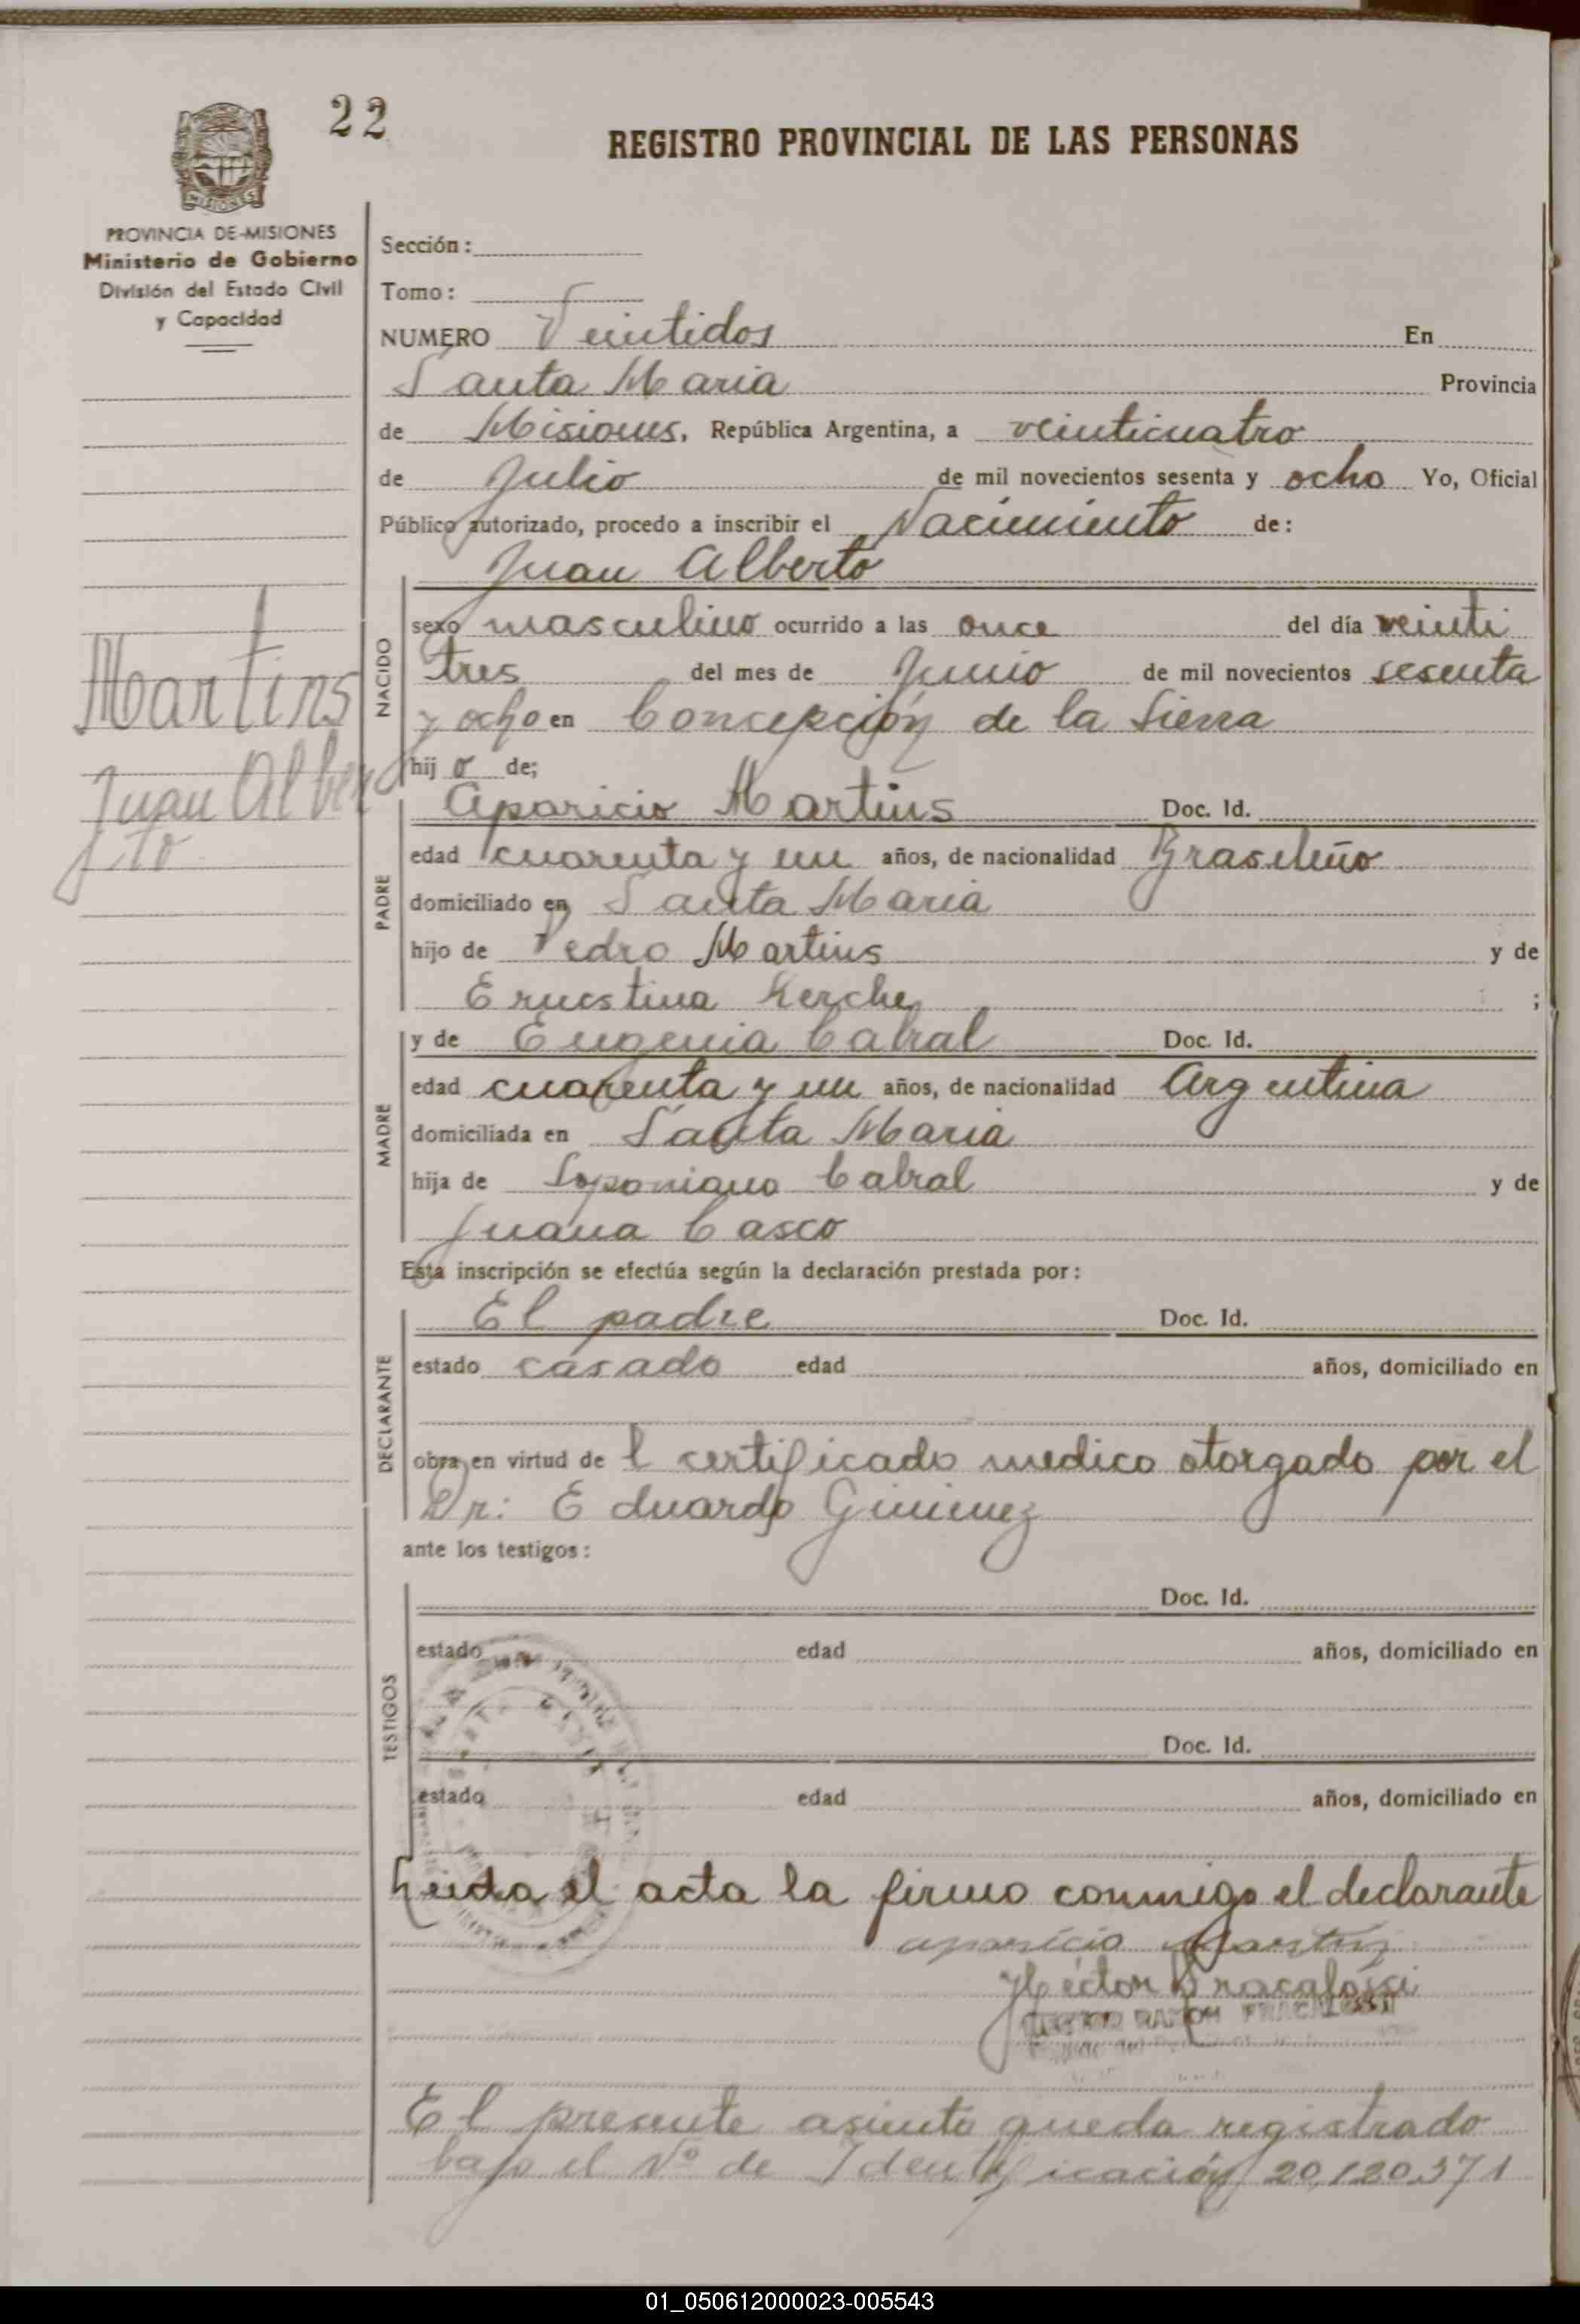 22
REGISTRO PROVINCIAL DE LAS PERSONAS
MISIONES
PROVINCIA DE MISIONES
Ministerio de Gobierno
División del Estado Civil
y Capacidad
Sección:
Tomo:
NUMERO Veintidos En
Santa Maria Provincia
de Misiones, República Argentina, a veinticuatro
de Julio de mil novecientos sesenta y ocho Yo, Oficial
Público autorizado, procedo a inscribir el Nacimiento de:
Juan Alberto
Martins
Juan Alber
to
NACIDO
sexo masculino ocurrido a las once del día veinti
tres del mes de Junio de mil novecientos sesenta
y ocho en Concepción de la Sierra
hij o de;
PADRE
Aparicio Martins Doc. Id.
edad cuarenta y un años, de nacionalidad Brasileño
domiciliado en Santa Maria
hijo de Pedro Martins y de
Ernestina Kerche ;
MADRE
y de Eugenia Cabral Doc. Id.
edad cuarenta y un años, de nacionalidad Argentina
domiciliada en Santa Maria
hija de Cabral y de
Juana Casco
Esta inscripción se efectúa según la declaración prestada por:
DECLARANTE
El padre Doc. Id.
estado casado edad años, domiciliado en
obra en virtud de l certificado medico otorgado por el
Dr: Eduardo Gimenez
ante los testigos:
TESTIGOS
Doc. Id.
estado edad años, domiciliado en
Doc. Id.
estado edad años, domiciliado en
Leida el acta la firmo conmigo el declarante
aparicio Martins
Héctor Fracalossi
HECTOR RAMON FRACALOSSI
El presente asiento queda registrado
bajo el Nº de Identificación 20,120.371
01_050612000023-005543